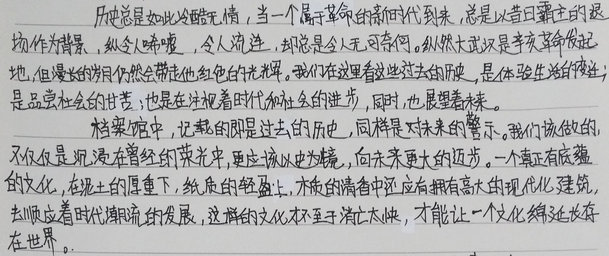 历史总是如此冷酷无情，当一个属于革命的新时代到来，总是以昔日霸主的退
场作为背景，纵令人唏嘘，令人流连，却总是令人无可奈何。纵然大武汉是辛亥革命发起
地，但漫长的岁月仍然会带走他红色的光辉。我们在这里看这些过去的历史，是体验生活的变迁；
是品尝社会的甘苦；也是在注视着时代和社会的进步，同时，也展望着未来。
档案馆中，记载的即是过去的历史，同样是对未来的警示。我们该做的，
不仅仅是沉浸在曾经的荣光中，更应该以史为镜，向未来更大的迈步。一个真正有底蕴
的文化，在泥土的厚重下，纸质的轻盈上，木质的清香中还应有拥有高大的现代化建筑，
去顺应着时代潮流的发展，这样的文化才不至于消亡太快，才能让一个文化绵延长存
在世界。